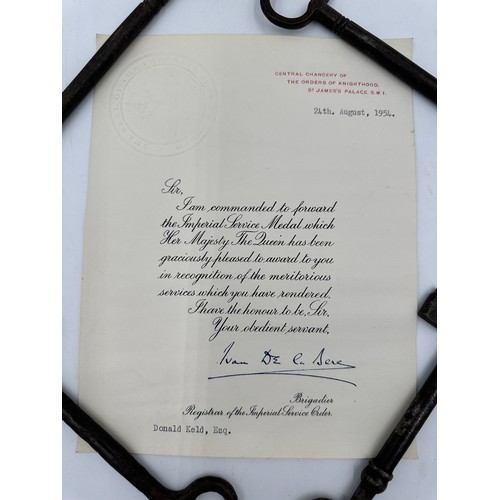 CENTRAL CHANCERY OF
THE ORDERS OF KNIGHTHOOD,
ST JAMES'S PALACE, S.W.1.
24th. August, 1954.
Sir,
I am commanded to forward
the Imperial Service Medal which
Her Majesty The Queen has been
graciously pleased to award to you
in recognition of the meritorious
services which you have rendered.
I have the honour to be, Sir,
Your obedient servant,
Ivan De la Bere
Brigadier
Registrar of the Imperial Service Order.
Donald Keld, Esq.